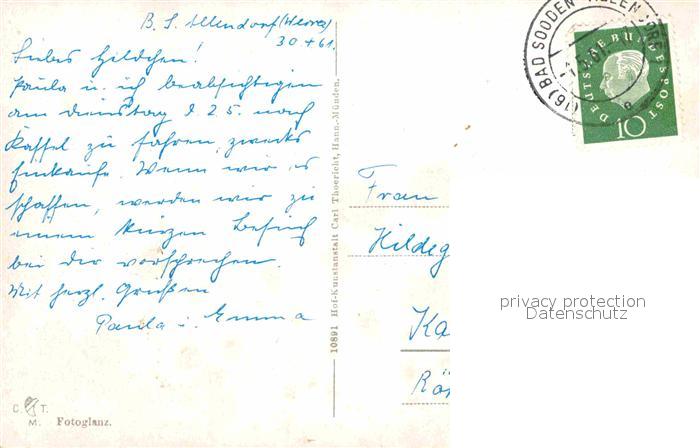 B. S. Allendorf (Werra)
30 4 61.
Liebes Hildchen!
Paula u. ich beabsichtigen
am Dienstag d. 2.5. nach
Kassel zu fahren, zwecks
Einkäufe. Wenn wir es
schaffen, werden wir zu
einem kurzen Besuch
bei dir vorsprechen.
Mit herzl. Grüßen
Paula u. Emma
C. T.
M. Fotoglanz.
10891 Hof-Kunstanstalt Carl Thoericht, Hann.-Münden.
(16) BAD SOODEN-ALLENDORF
DEUTSCHE BUNDESPOST
10
Frau
Hildeg
Ka
privacy protection
Datenschutz